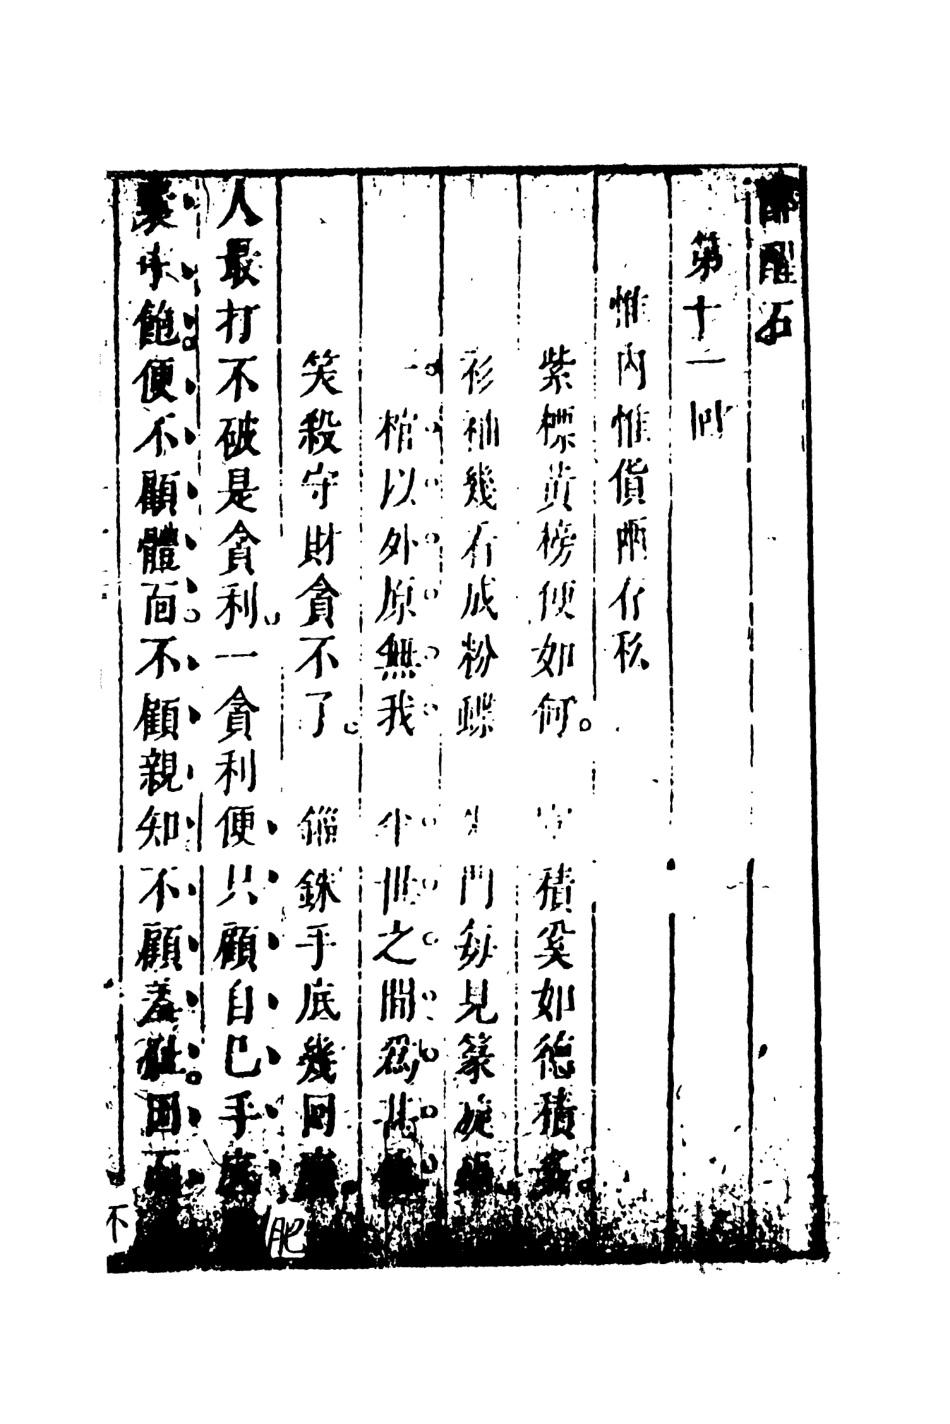 醉醒石
第十一回
惟內惟貨兩存私
紫標黃榜便如何。積奚如德積多
衫袖幾看成粉蝶 門每見篆旋
一棺以外原無我 半世之間爲甚
笑殺守財貪不了。 錙銖手底幾回
人最打不破是貪利。一貪利便只顧自己手底
囊中飽便不顧體面不顧親知不顧羞恥因而
不
肥